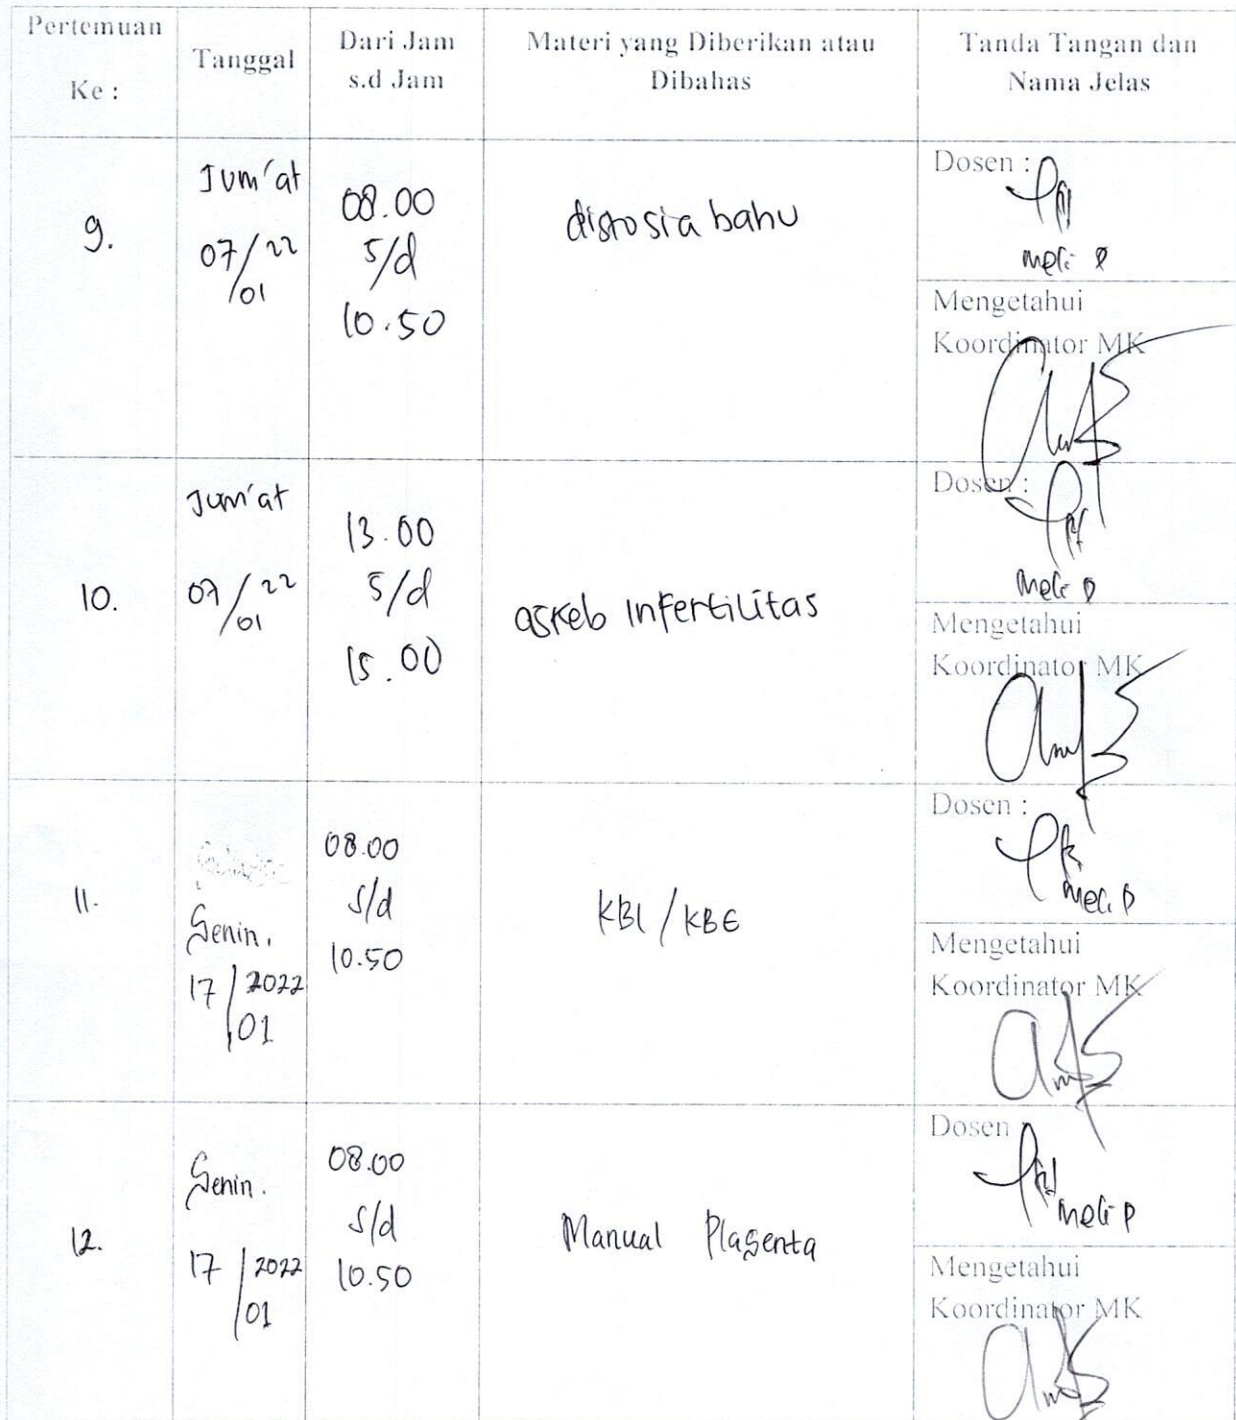 Pertemuan
Ke :
Tanggal
Dari Jam
s.d Jam
Materi yang Diberikan atau
Dibahas
Tanda Tangan dan
Nama Jelas
9.
Jum'at
07/22
/01
08.00
s/d
10.50
distosia bahu
Dosen :
Meli P
Mengetahui
Koordinator MK
10.
Jum'at
07/22
/01
13.00
s/d
15.00
askeb infertilitas
Dosen :
Meli P
Mengetahui
Koordinator MK
11.
Senin.
17/2022
01
08.00
s/d
10.50
KBI / KBE
Dosen :
Meli P
Mengetahui
Koordinator MK
12.
Senin.
17/2022
01
08.00
s/d
10.50
Manual Plasenta
Dosen
Meli P
Mengetahui
Koordinator MK